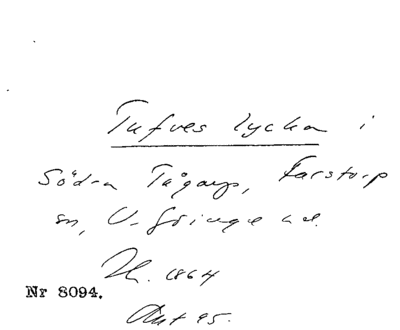 Tufves lycka i
Södra Tågarp, Farstorp
sn, V. Göinge hd.
1864
Nr 8094.